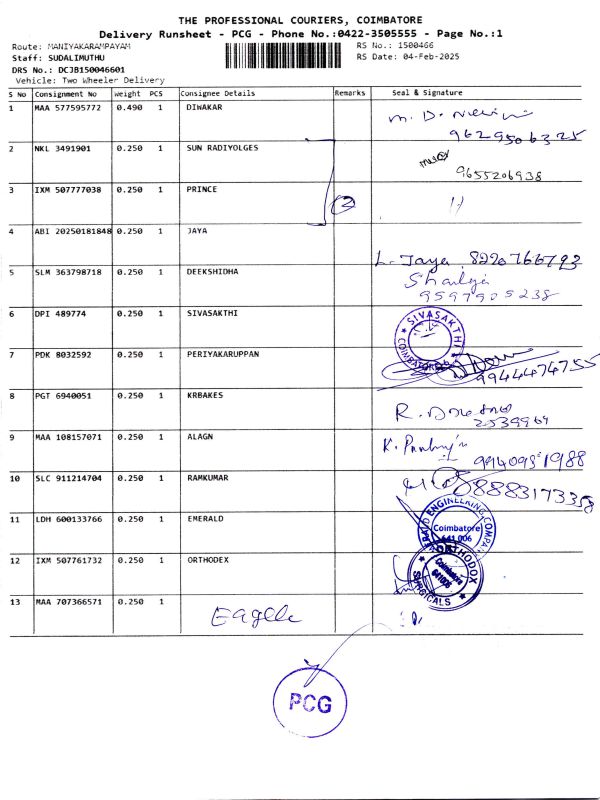 THE PROFESSIONAL COURIERS, COIMBATORE
Delivery Runsheet - PCG - Phone No.:0422-3505555 - Page No.:1
Route: MANIYAKARAMPAYAM RS No.: 1500466
Staff: SUDALIMUTHU RS Date: 04-Feb-2025
DRS No.: DCJB150046601
Vehicle: Two Wheeler Delivery
S No Consignment No Weight PCS Consignee Details Remarks Seal & Signature
1 MAA 577595772 0.490 1 DIWAKAR M. D.
9629506325
2 NKL 3491901 0.250 1 SUN RADIYOLGES
9655206938
3 IXM 507777038 0.250 1 PRINCE 2
4 ABI 20250181848 0.250 1 JAYA
L. Jaya 8220766793
5 SLM 363798718 0.250 1 DEEKSHIDHA
9597905238
6 DPI 489774 0.250 1 SIVASAKTHI SIVASAKTHI
COIMBATORE
7 PDK 8032592 0.250 1 PERIYAKARUPPAN
9944474755
8 PGT 6940051 0.250 1 KRBAKES R.
9 MAA 108157071 0.250 1 ALAGN K.
9940951988
10 SLC 911214704 0.250 1 RAMKUMAR
8883173358
11 LDH 600133766 0.250 1 EMERALD EMERALD ENGINEERING COMPANY
Coimbatore
641 006
12 IXM 507761732 0.250 1 ORTHODEX ORTHODOX SURGICALS
Coimbatore
641006
13 MAA 707366571 0.250 1 Eagle
PCG